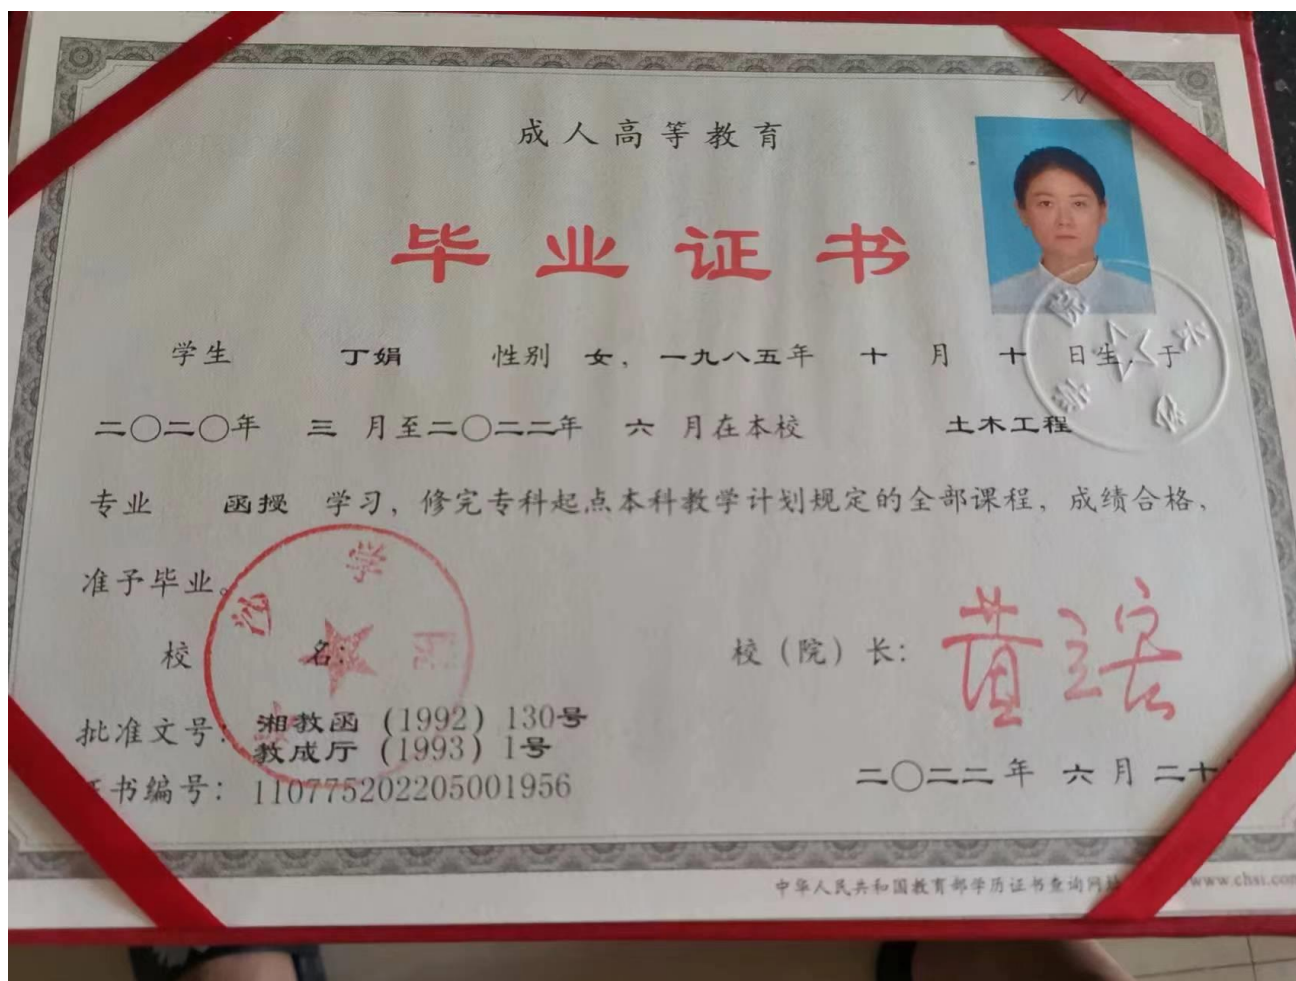 成人高等教育
毕业证书
学生 丁娟 性别 女，一九八五年 十 月 十 日生，于
二〇二〇年 三 月至二〇二二年 六 月在本校 土木工程
专业 函授 学习，修完专科起点本科教学计划规定的全部课程，成绩合格，
准予毕业。
校 名： 校（院）长：
批准文号：湘教函（1992）130号
教成厅（1993）1号
书编号：110775202205001956
二〇二二年 六 月 二十
中华人民共和国教育部学历证书查询网 www.chsi.com